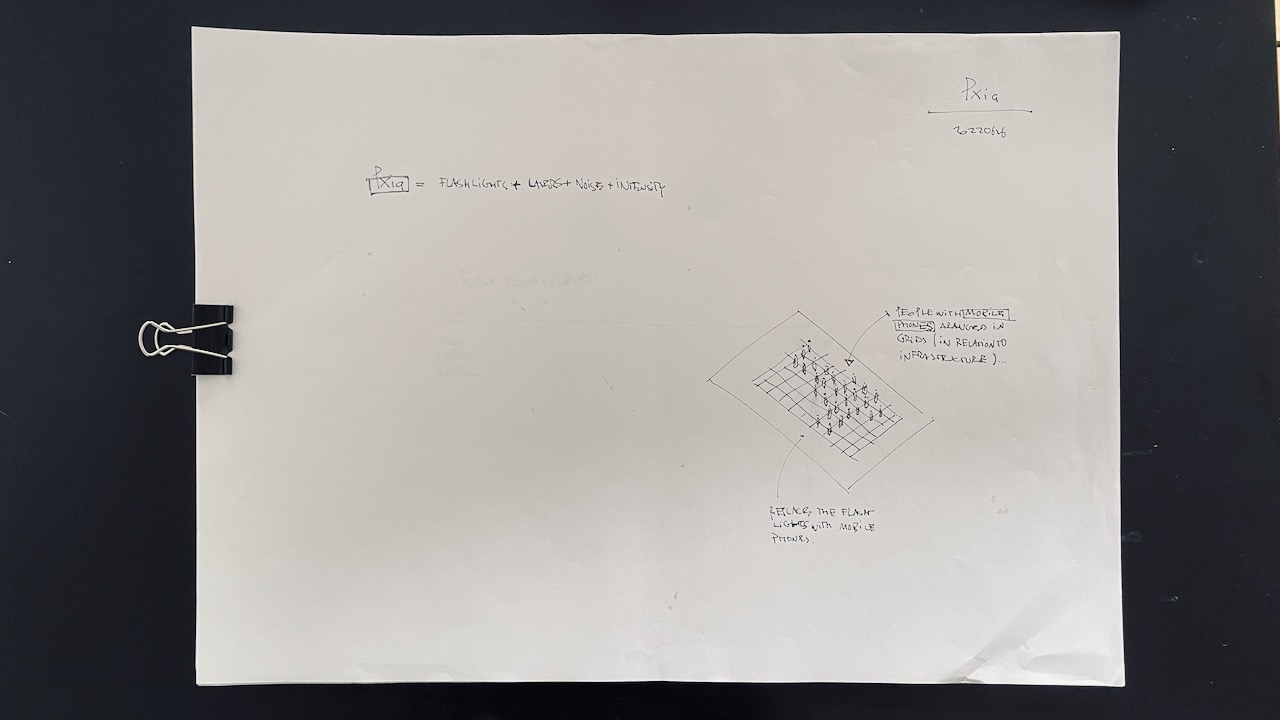 Pxia
Pxia = FLASHLIGHTS + LASERS + NOISE + INTENSITY
PEOPLE WITH MOBILE
PHONES ARANGED IN
GRIDS (IN RELATION TO
INFRASTRUCTURE)...
REPLACE THE FLASH
LIGHTS WITH MOBILE
PHONES.